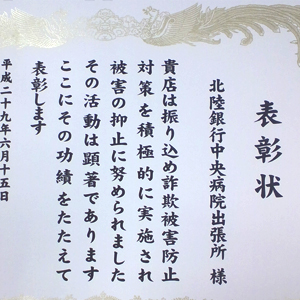 表彰状
北陸銀行中央病院出張所 様
貴店は振り込め詐欺被害防止
対策を積極的に実施され
被害の抑止に努められました
その活動は顕著であります
ここにその功績をたたえて
表彰します
平成二十九年六月十五日